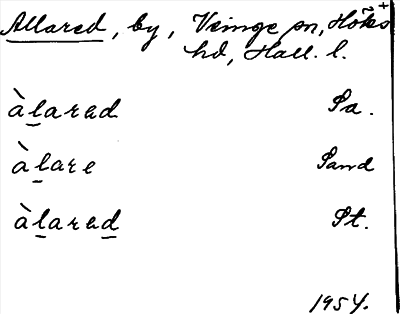 Allared, by, Veinge sn, Höks
hd, Hall. l.
àlarad Sa.
àlare Sand
àlarad St.
1954.